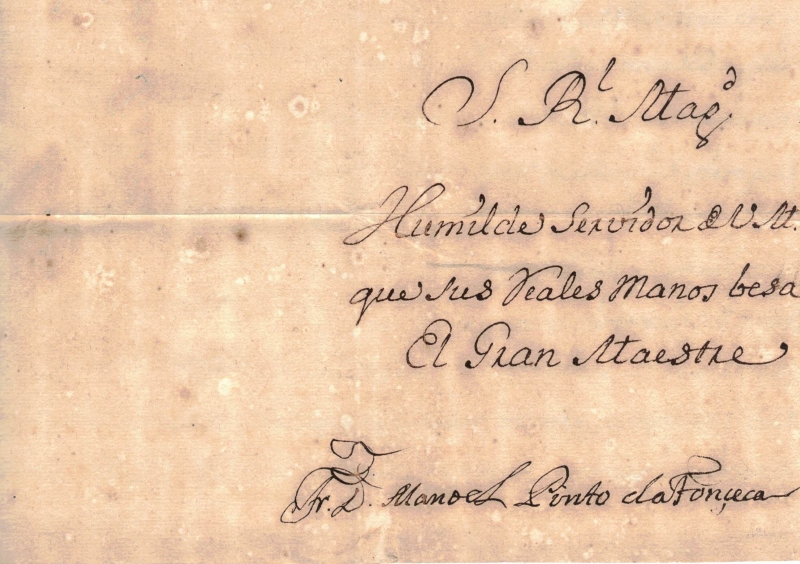 S. Rl. Magd
Humilde Servidor de V M.
que sus Reales Manos besa
El Gran Maestre
Fr. D. Manoel Pinto da Fonçeca